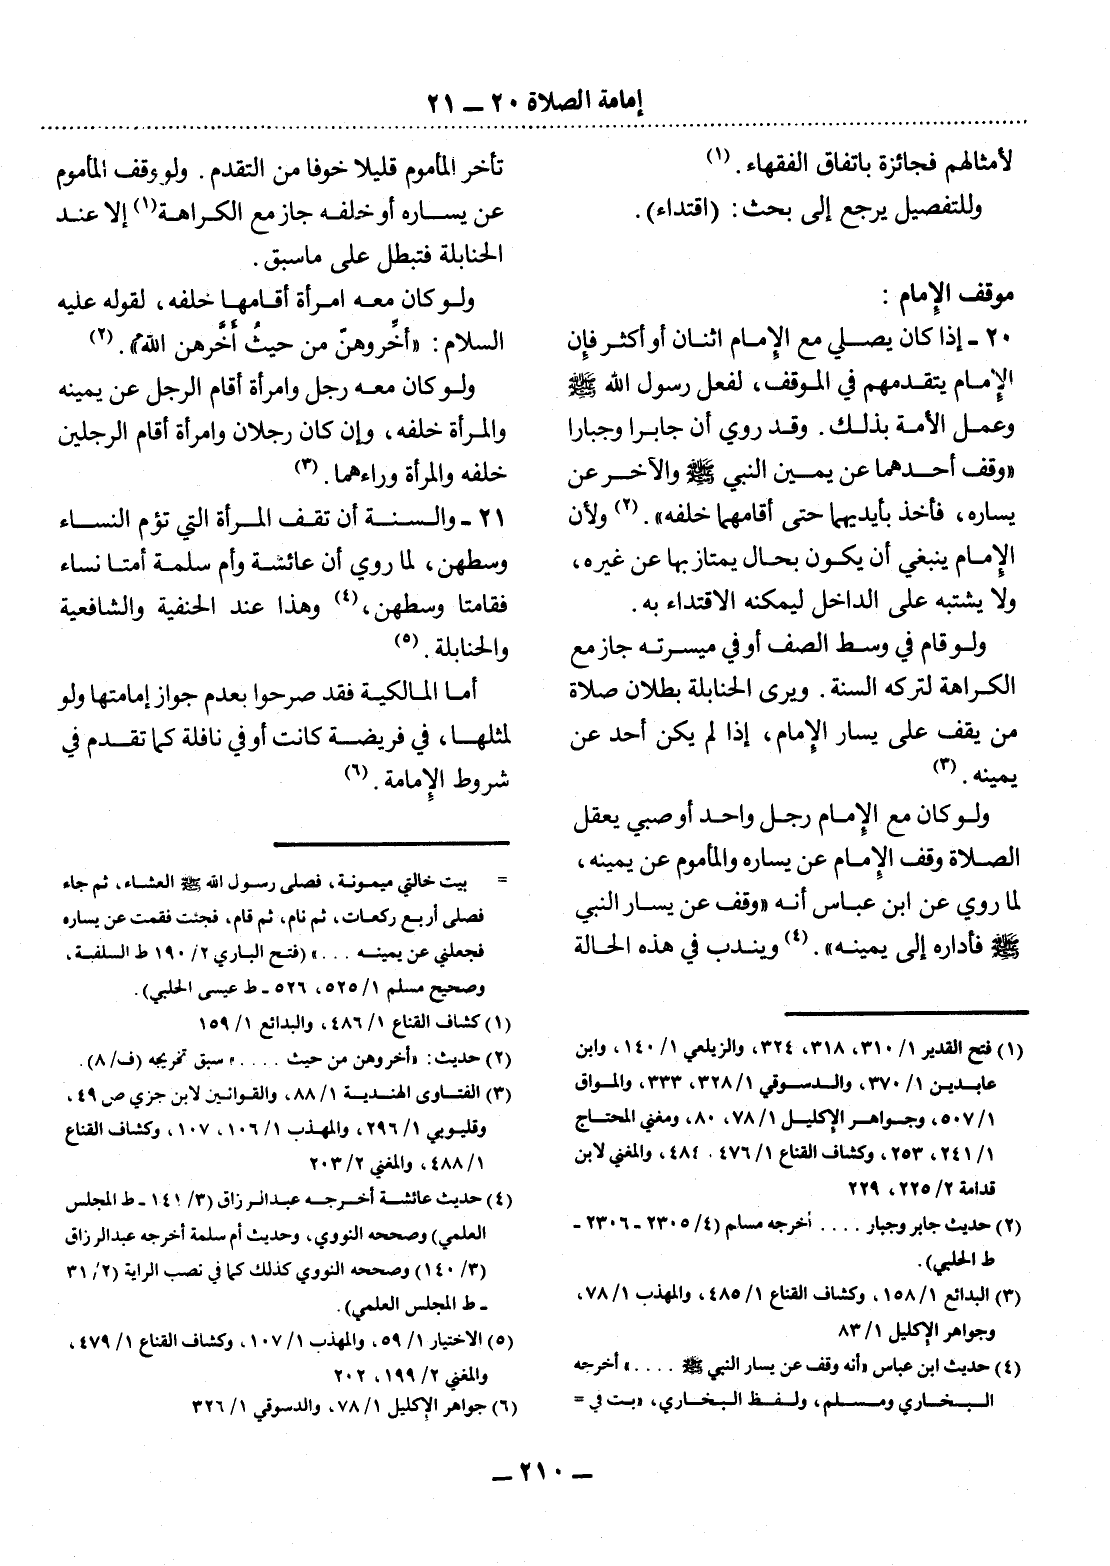 إمامة الصلاة ٢٠ ــ ٢١
لأمثالهم فجائزة باتفاق الفقهاء. (١)
وللتفصيل يرجع إلى بحث: (اقتداء).
موقف الإمام :
٢٠ ـ إذا كان يصلي مع الإمام اثنان أو أكثر فإن
الإمام يتقدمهم في الموقف، لفعل رسول الله ﷺ
وعمل الأمة بذلك. وقد روي أن جابرا وجبارا
«وقف أحدهما عن يمين النبي ﷺ والآخر عن
يساره، فأخذ بأيديهما حتى أقامهما خلفه». (٢) ولأن
الإمام ينبغي أن يكون بحال يمتاز بها عن غيره،
ولا يشتبه على الداخل ليمكنه الاقتداء به.
ولو قام في وسط الصف أو في ميسرته جاز مع
الكراهة لتركه السنة. ويرى الحنابلة بطلان صلاة
من يقف على يسار الإمام، إذا لم يكن أحد عن
يمينه. (٣)
ولو كان مع الإمام رجل واحد أو صبي يعقل
الصلاة وقف الإمام عن يساره والمأموم عن يمينه،
لما روي عن ابن عباس أنه «وقف عن يسار النبي
ﷺ فأداره إلى يمينه». (٤) ويندب في هذه الحالة
(١) فتح القدير ١/ ٣١٠، ٣١٨، ٣٢٤، والزيلعي ١/ ١٤٠، وابن
عابدين ١/ ٣٧٠، والدسوقي ١/ ٣٢٨، ٣٣٣، والمواق
١/ ٥٠٧، وجواهر الإكليل ١/ ٧٨، ٨٠، ومغني المحتاج
١/ ٢٤١، ٢٥٣، وكشاف القناع ١/ ٤٧٦، ٤٨٤، والمغني لابن
قدامة ٢/ ٢٢٥، ٢٢٩
(٢) حديث جابر وجبار .... أخرجه مسلم (٤/ ٢٣٠٥ ـ ٢٣٠٦ ـ
ط الحلبي).
(٣) البدائع ١/ ١٥٨، وكشاف القناع ١/ ٤٨٥، والمهذب ١/ ٧٨،
وجواهر الإكليل ١/ ٨٣
(٤) حديث ابن عباس «أنه وقف عن يسار النبي ﷺ ....» أخرجه
البخاري ومسلم، ولفظ البخاري، «بت في =
تأخر المأموم قليلا خوفا من التقدم. ولو وقف المأموم
عن يساره أو خلفه جاز مع الكراهة(١) إلا عند
الحنابلة فتبطل على ماسبق.
ولو كان معه امرأة أقامها خلفه، لقوله عليه
السلام: «أخِّروهنّ من حيثُ أَخَّرهن الله». (٢)
ولو كان معه رجل وامرأة أقام الرجل عن يمينه
والمرأة خلفه، وإن كان رجلان وامرأة أقام الرجلين
خلفه والمرأة وراءهما. (٣)
٢١ ـ والسنة أن تقف المرأة التي تؤم النساء
وسطهن، لما روي أن عائشة وأم سلمة أمتا نساء
فقامتا وسطهن، (٤) وهذا عند الحنفية والشافعية
والحنابلة. (٥)
أما المالكية فقد صرحوا بعدم جواز إمامتها ولو
لمثلها، في فريضة كانت أو في نافلة كما تقدم في
شروط الإمامة. (٦)
= بيت خالتي ميمونة، فصلى رسول الله ﷺ العشاء، ثم جاء
فصلى أربع ركعات، ثم نام، ثم قام، فجئت فقمت عن يساره
فجعلني عن يمينه ...» (فتح الباري ٢/ ١٩٠ ط السلفية،
وصحيح مسلم ١/ ٥٢٥، ٥٢٦ ـ ط عيسى الحلبي).
(١) كشاف القناع ١/ ٤٨٦، والبدائع ١/ ١٥٩
(٢) حديث: «أخروهن من حيث ....» سبق تخريجه (ف/ ٨).
(٣) الفتاوى الهندية ١/ ٨٨، والقوانين لابن جزي ص ٤٩،
وقليوبي ١/ ٢٩٦، والمهذب ١/ ١٠٦، ١٠٧، وكشاف القناع
١/ ٤٨٨، والمغني ٢/ ٢٠٣
(٤) حديث عائشة أخرجه عبدالرزاق (٣/ ١٤١ ـ ط المجلس
العلمي) وصححه النووي، وحديث أم سلمة أخرجه عبدالرزاق
(٣/ ١٤٠) وصححه النووي كذلك كما في نصب الراية (٢/ ٣١
ـ ط المجلس العلمي).
(٥) الاختيار ١/ ٥٩، والمهذب ١/ ١٠٧، وكشاف القناع ١/ ٤٧٩،
والمغني ٢/ ١٩٩، ٢٠٢
(٦) جواهر الإكليل ١/ ٧٨، والدسوقي ١/ ٣٢٦
ــ ٢١٠ ــ